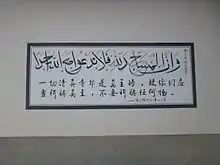 وأن المساجد لله فلا تدعوا مع الله أحدا
一切清真寺都是真主的，故你们应
当祈祷真主，不要祈祷任何物。